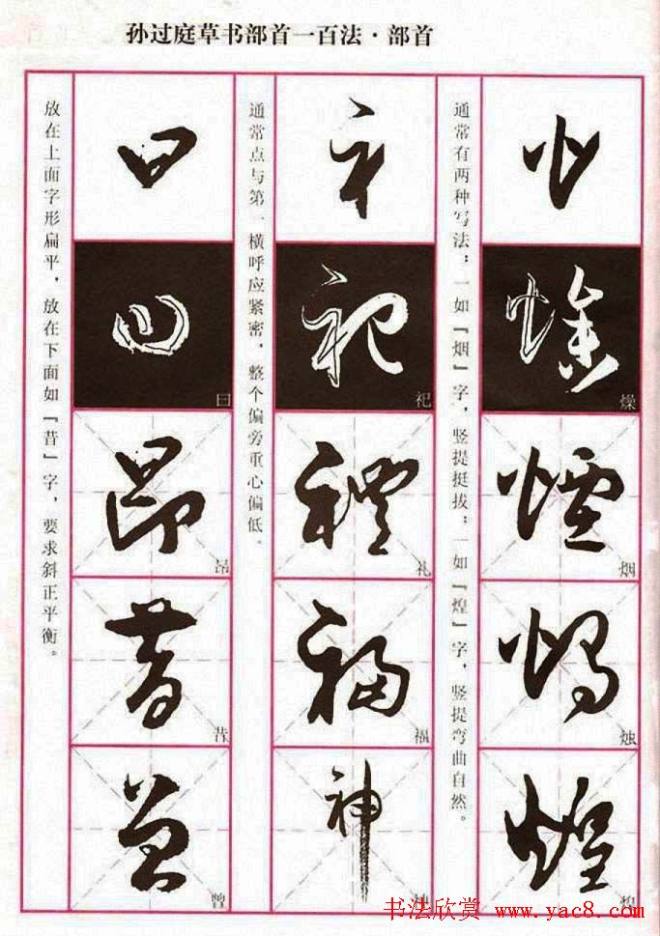 孙过庭草书部首一百法·部首
通常有两种写法：一如『烟』字，竖提挺拔；一如『煌』字，竖提弯曲自然。
燥
烟
烛
煌
通常点与第一横呼应紧密，整个偏旁重心偏低。
祀
礼
福
神
放在上面字形扁平，放在下面如『昔』字，要求斜正平衡。
曰
昂
昔
书法欣赏 www.yac8.com